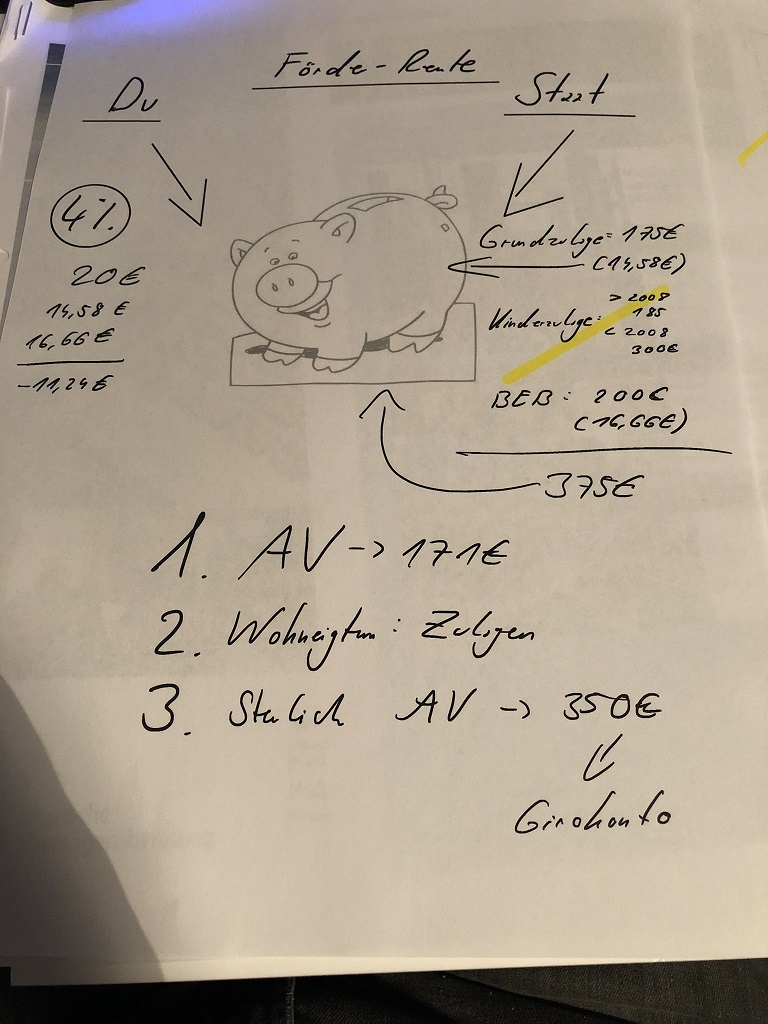 Förde-Rente
Du
Staat
4%
20€
14,58 €
16,66 €
-11,24€
Grundzulage= 175€
(14,58€)
> 2008
Kinderzulage: 185
< 2008
300€
BEB: 200€
(16,66€)
375€
1. AV -> 171€
2. Wohneigtum: Zulagen
3. Sterlich AV -> 350€
Girokonto